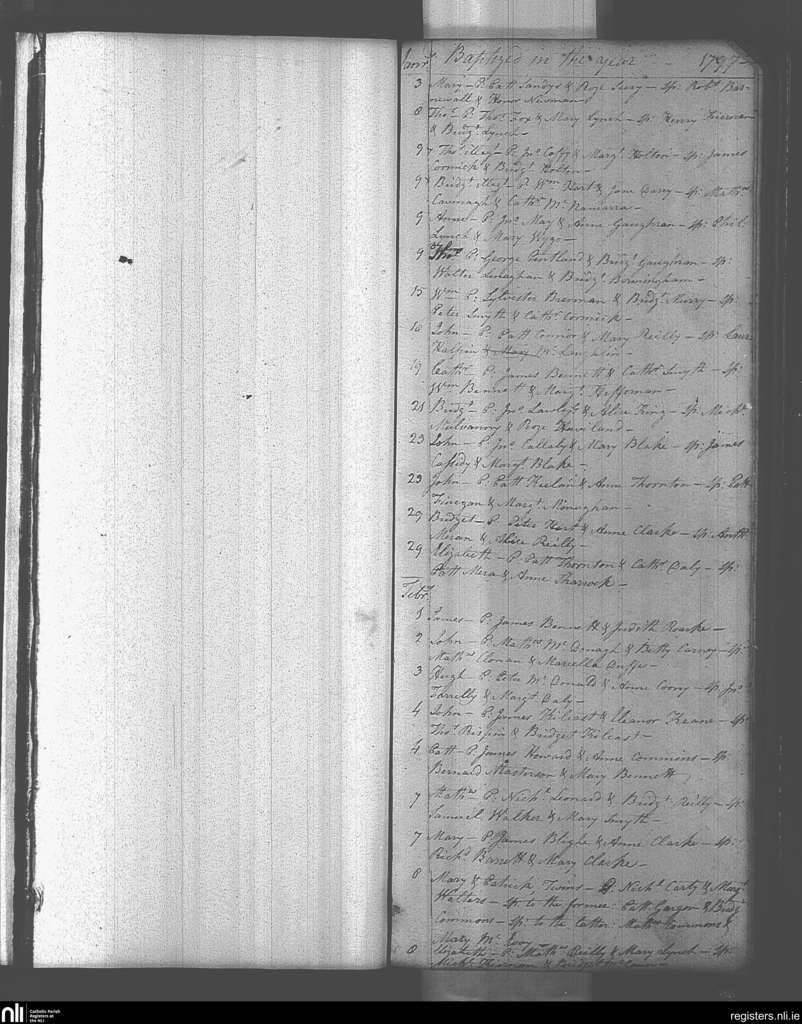 Janry Baptized in the year 1797
3 Mary - P. Patt Sandys & Rose - Sp: Robt Bar-
newall & Honor Newman -
8 Thos P. Thos Fox & Mary Lynch - Sp: Henry
& Bridgt Lynch -
9 Thos illegt P. Jno Coffy & Margt Holton - Sp: James
Cormick & Bridgt Holton -
9 Bridgt illegt - P. Wm Hart & Jane Carey - Sp: Mathw
Cavenagh & Cathe McNamarra -
9 Anne - P. Jno May & Anne Gaughran - Sp: Phil:
Lynch & Mary
9 Thos P. George Pentland & Bridgt Gaughran - Sp:
Walter & Bridgt Bermingham -
15 Wm P. Sylvester Brennan & Bridgt - Sp:
Peter Smyth & Cathe Cormick -
16 John - P. Patt Connor & Mary Reilly - Sp: Laur
Halpin & Mary McLoughlin -
19 Cathe P. James Bennett & Cathe Smyth - Sp:
Wm Bennett & Margt Heffernan -
21 Bridgt P. Jno Lawless & Alice King - Sp: Michl
Mulvanny & Rose Haviland -
23 John - P. Jno Callaly & Mary Blake - Sp: James
Cassidy & Margt Blake -
29 John - P. Patt & Anne Thornton - Sp: Patt
Finegan & Margt Monaghan -
29 Bridget - P. Peter Hart & Anne Clarke - Sp:
& Alice Reilly -
29 Elizabeth - P. Patt Thornton & Cathe Daly - Sp:
Patt Mera & Anne Sharrock -
Febry
1 James - P. James Bennett & Judith Roarke -
2 John - P. Mathw McDonagh & Betty Carney - Sp:
Mathw Clonan & Marcella Duffe -
3 Hugh - P. Peter McDonald & Anne Coony - Sp: Jno
Farrelly & Margt Daly -
4 John - P. James Kilcast & Eleanor Keane - Sp:
Thos Rispin & Bridget Kilcast -
4 Patt - P. James Howard & Anne Commins - Sp:
Bernard Masterson & Mary Bennett
7 Mathw P. Nichs Leonard & Bridgt Reilly - Sp:
Samuel Walker & Mary Smyth -
7 Mary - P. James Blighe & Anne Clarke - Sp:
Richd Barrett & Mary Clarke -
8 Mary & Patrick Twins - P. Nichs Carty & Margt
Walters - Sp: to the former: Patt Gargan & Bridgt
Commons - Sp: to the latter: Mathw Commons &
Mary McEvoy -
8 Elizabeth - P. Mathw Reilly & Mary Lynch - Sp:
Michl & Bridget
nli Catholic Parish
Registers at
the NLI
registers.nli.ie